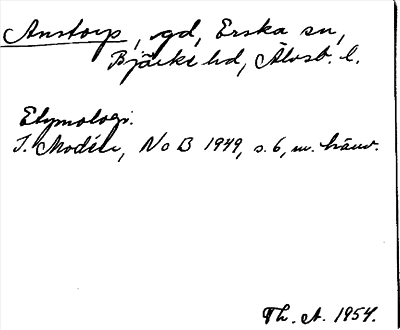 Anstorp, gd, Erska sn,
Bjärke hd, Älvsb. l.
Etymologi.
I. Modéer, NoB 1949, s. 6, m. hänv.
Th. A. 1954.